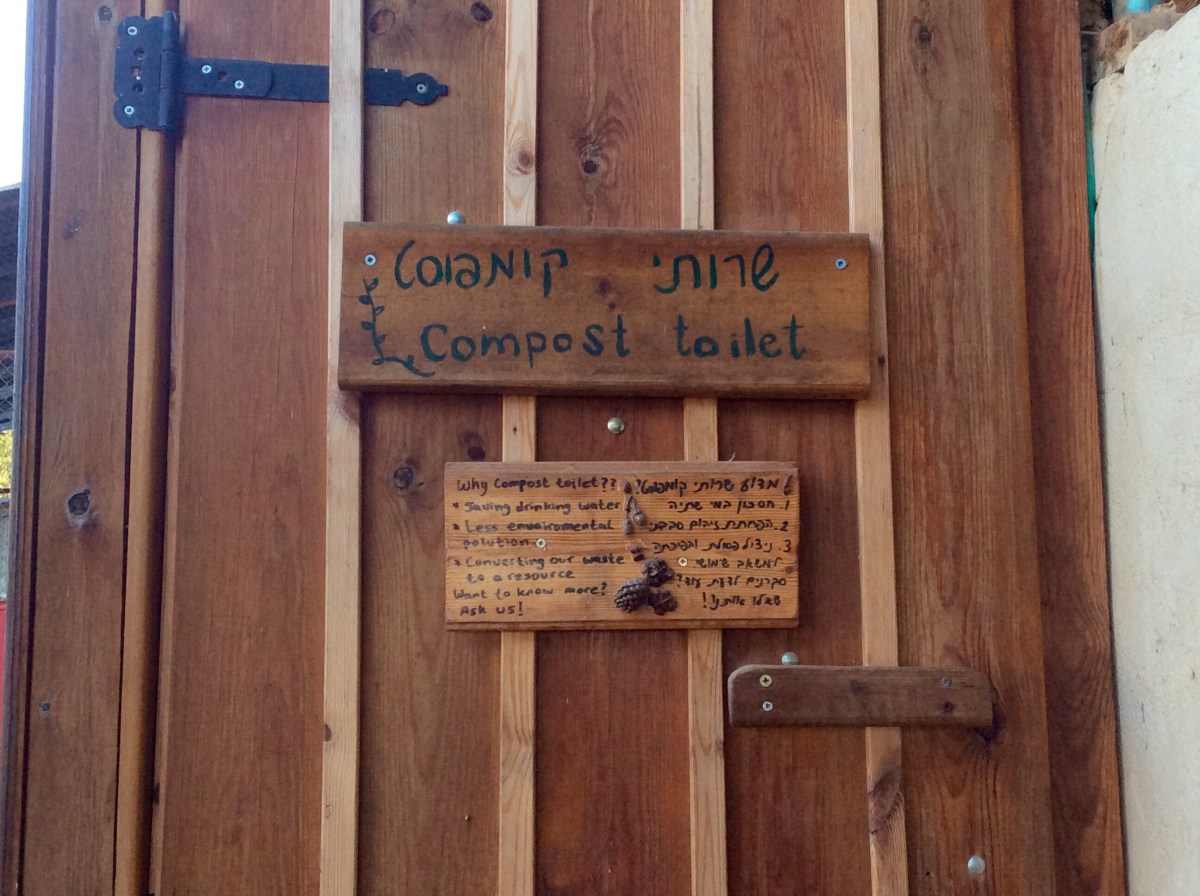 שרותי קומפוסט
Compost toilet
Why Compost toilet??
• Saving drinking water
• Less enviromental
polution
• Converting our waste
to a resource
Want to know more?
Ask us!
מדוע שרותי קומפוסט?
1. חסכון במי שתיה
2. הפחתת זיהום סבבתי
3. ניצול פסולת והפיכתה
למשאב שימושי.
סקרנים לדעת עוד?
שאלו אותנו!